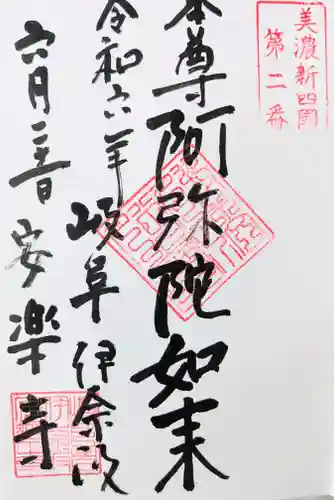 美濃新四国
第二番
本尊阿弥陀如来
令和六年岐阜伊奈波
六月二十日安楽寺